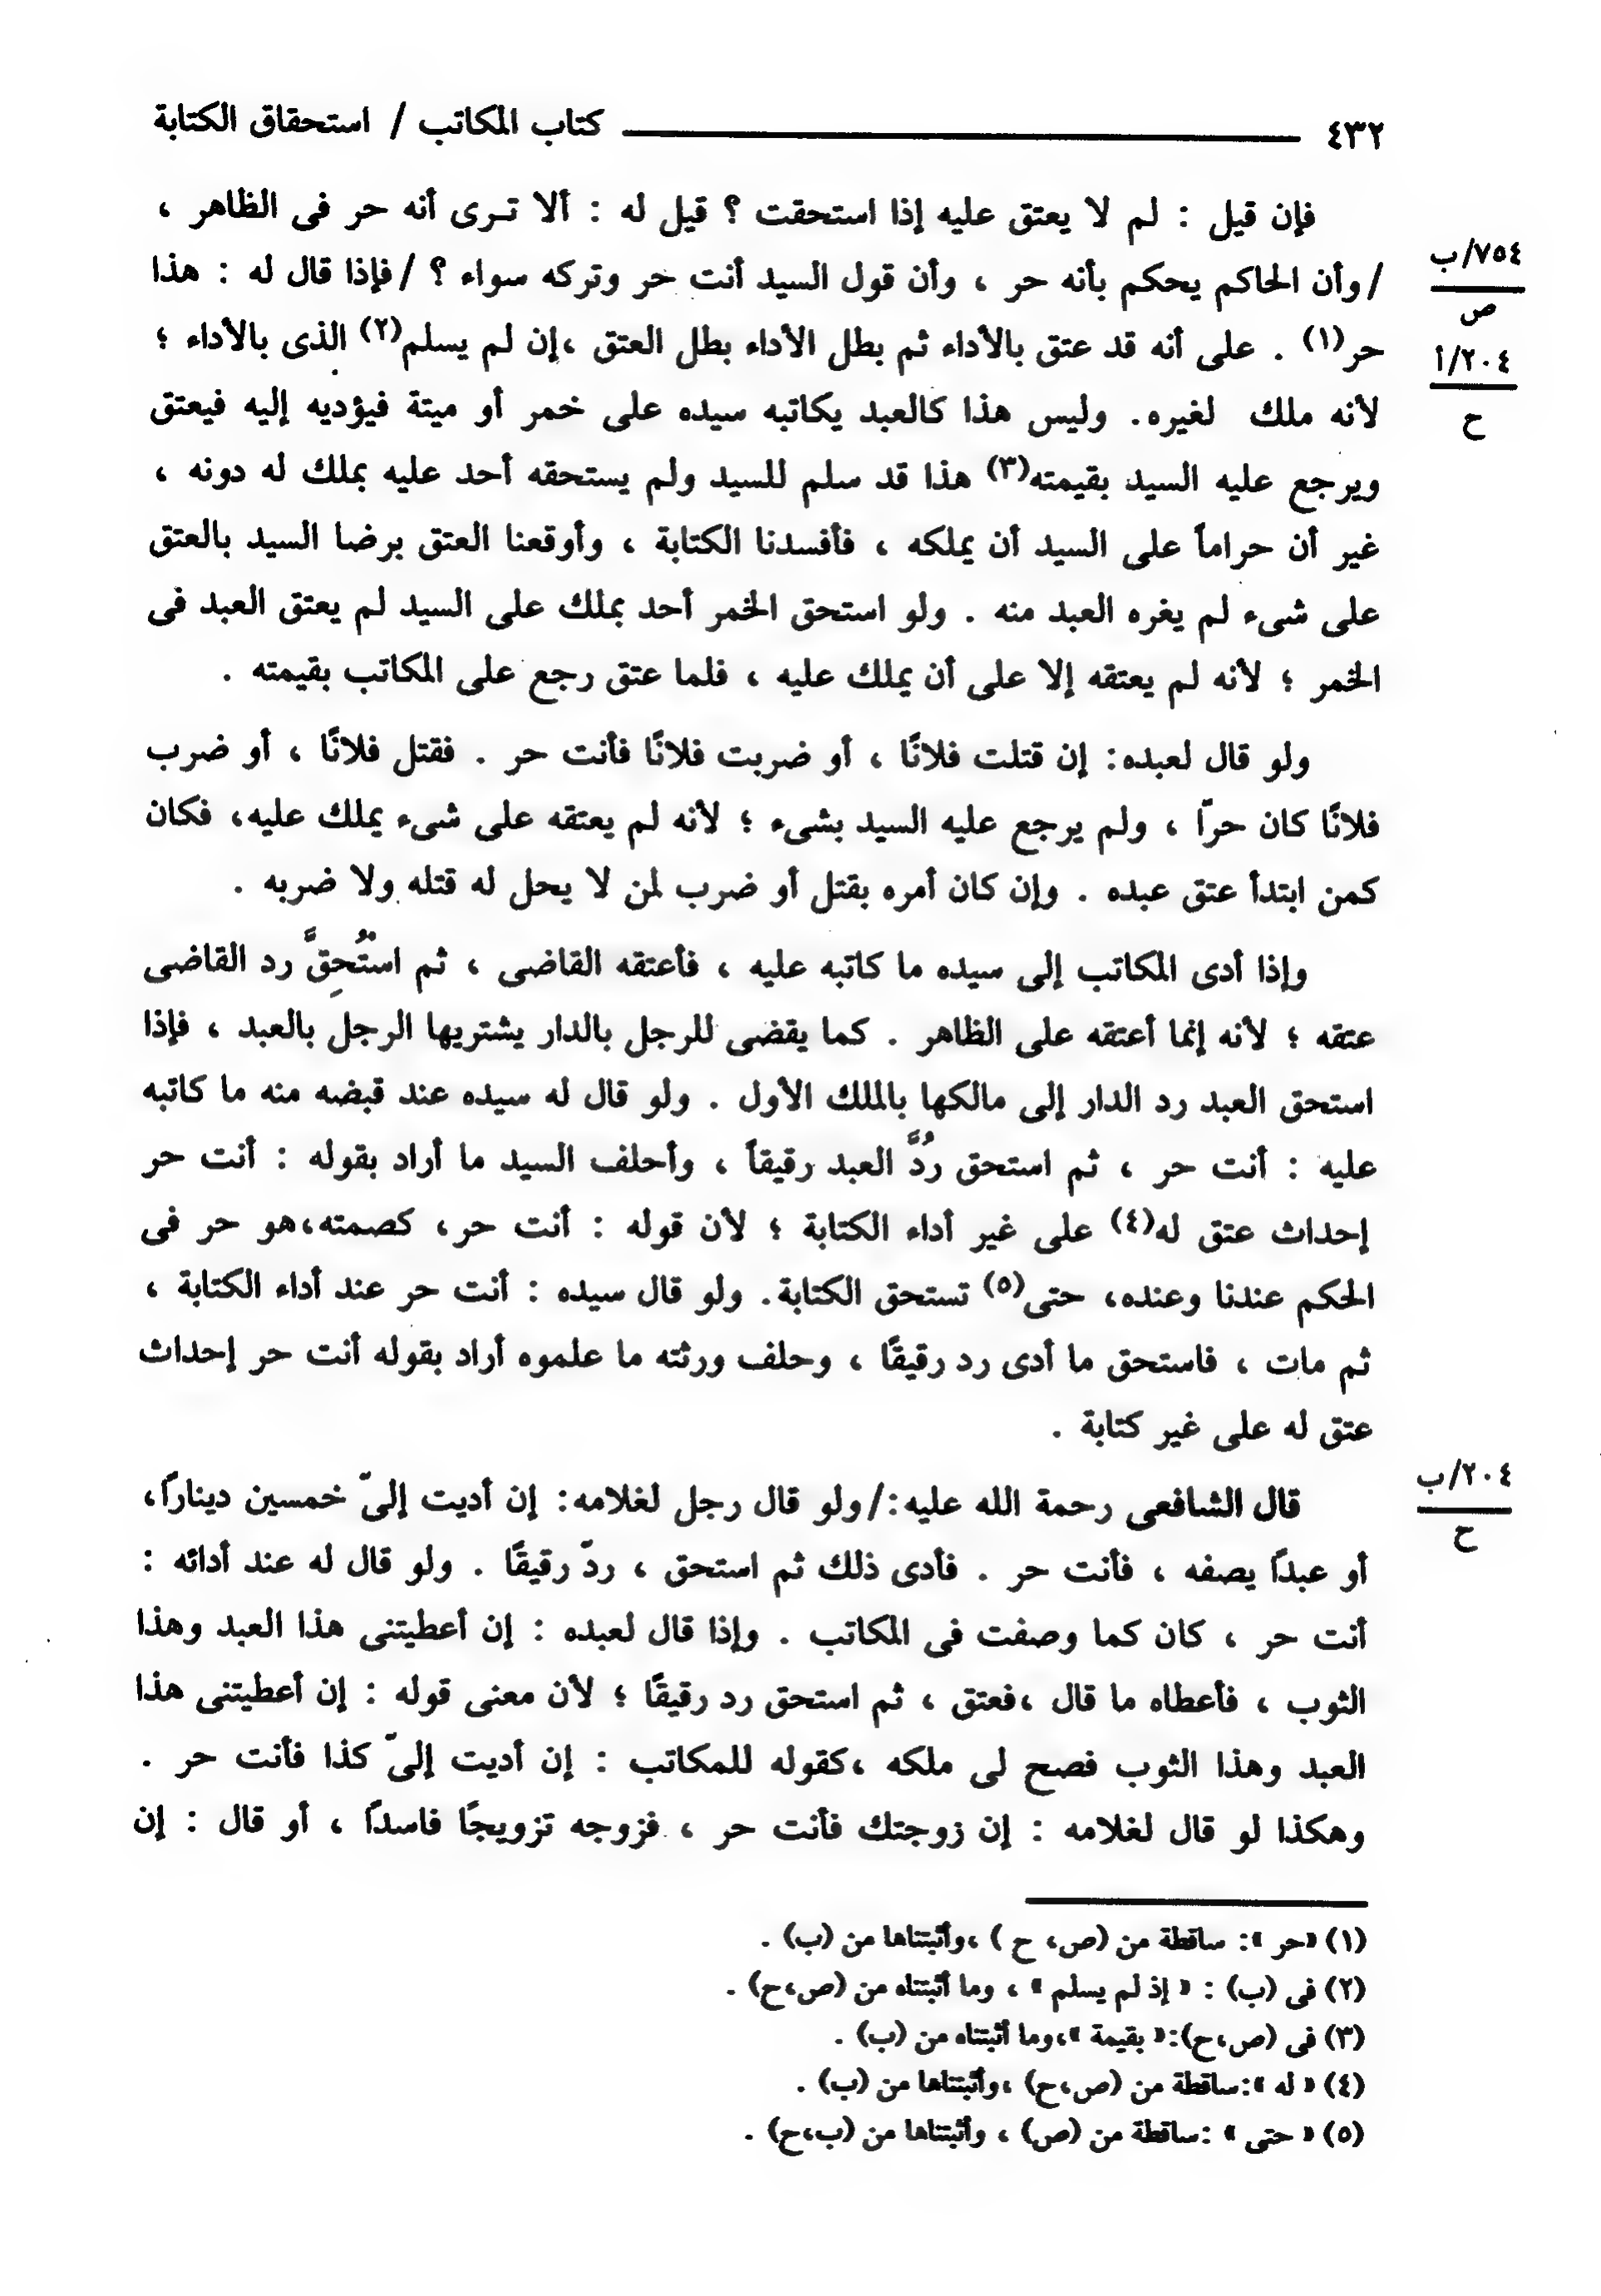 ٤٣٢ كتاب المكاتب / استحقاق الكتابة
فإن قيل : لم لا يعتق عليه إذا استحقت ؟ قيل له : ألا تـرى أنه حر فى الظاهر ،
٧٥٤/ب
ص
/وأن الحاكم يحكم بأنه حر ، وأن قول السيد أنت حر وتركه سواء ؟ /فإذا قال له : هذا
٢٠٤/أ
ح
حر(١) . على أنه قد عتق بالأداء ثم بطل الأداء بطل العتق ،إن لم يسلم(٢) الذى بالأداء ؛
لأنه ملك لغيره. وليس هذا كالعبد يكاتبه سيده على خمر أو ميتة فيؤديه إليه فيعتق
ويرجع عليه السيد بقيمته(٣) هذا قد سلم للسيد ولم يستحقه أحد عليه بملك له دونه ،
غير أن حراماً على السيد أن يملكه ، فأفسدنا الكتابة ، وأوقعنا العتق برضا السيد بالعتق
على شىء لم يغره العبد منه . ولو استحق الخمر أحد بملك على السيد لم يعتق العبد فى
الخمر ؛ لأنه لم يعتقه إلا على أن يملك عليه ، فلما عتق رجع على المكاتب بقيمته .
ولو قال لعبده: إن قتلت فلانًا ، أو ضربت فلانًا فأنت حر . فقتل فلانًا ، أو ضرب
فلانًا كان حرّا ، ولم يرجع عليه السيد بشىء ؛ لأنه لم يعتقه على شىء يملك عليه، فكان
كمن ابتدأ عتق عبده . وإن كان أمره بقتل أو ضرب لمن لا يحل له قتله ولا ضربه .
وإذا أدى المكاتب إلى سيده ما كاتبه عليه ، فأعتقه القاضى ، ثم استُحِقَّ رد القاضى
عتقه ؛ لأنه إنما أعتقه على الظاهر . كما يقضى للرجل بالدار يشتريها الرجل بالعبد ، فإذا
استحق العبد رد الدار إلى مالكها بالملك الأول . ولو قال له سيده عند قبضه منه ما كاتبه
عليه : أنت حر ، ثم استحق رُدَّ العبد رقيقاً ، وأحلف السيد ما أراد بقوله : أنت حر
إحداث عتق له(٤) على غير أداء الكتابة ؛ لأن قوله : أنت حر، كصمته،هو حر فى
الحكم عندنا وعنده، حتى(٥) تستحق الكتابة. ولو قال سيده : أنت حر عند أداء الكتابة ،
ثم مات ، فاستحق ما أدى رد رقيقًا ، وحلف ورثته ما علموه أراد بقوله أنت حر إحداث
عتق له على غير كتابة .
٢٠٤/ب
ح
قال الشافعى رحمة الله عليه:/ولو قال رجل لغلامه: إن أديت إلىّ خمسين ديناراً،
أو عبدًا يصفه ، فأنت حر . فأدى ذلك ثم استحق ، ردّ رقيقًا . ولو قال له عند أدائه :
أنت حر ، كان كما وصفت فى المكاتب . وإذا قال لعبده : إن أعطيتنى هذا العبد وهذا
الثوب ، فأعطاه ما قال ،فعتق ، ثم استحق رد رقيقًا ؛ لأن معنى قوله : إن أعطيتنى هذا
العبد وهذا الثوب فصح لى ملكه ،كقوله للمكاتب : إن أديت إلىّ كذا فأنت حر .
وهكذا لو قال لغلامه : إن زوجتك فأنت حر ، فزوجه تزويجًا فاسدًا ، أو قال : إن
(١) «حر »: ساقطة من (ص، ح ) ،وأثبتناها من (ب) .
(٢) فى (ب) : « إذ لم يسلم » ، وما أثبتناه من (ص،ح) .
(٣) فى (ص،ح):« بقيمة »،وما أثبتناه من (ب) .
(٤) « له »:ساقطة من (ص،ح) ،وأثبتناها من (ب) .
(٥) « حتى » :ساقطة من (ص) ، وأثبتناها من (ب،ح) .